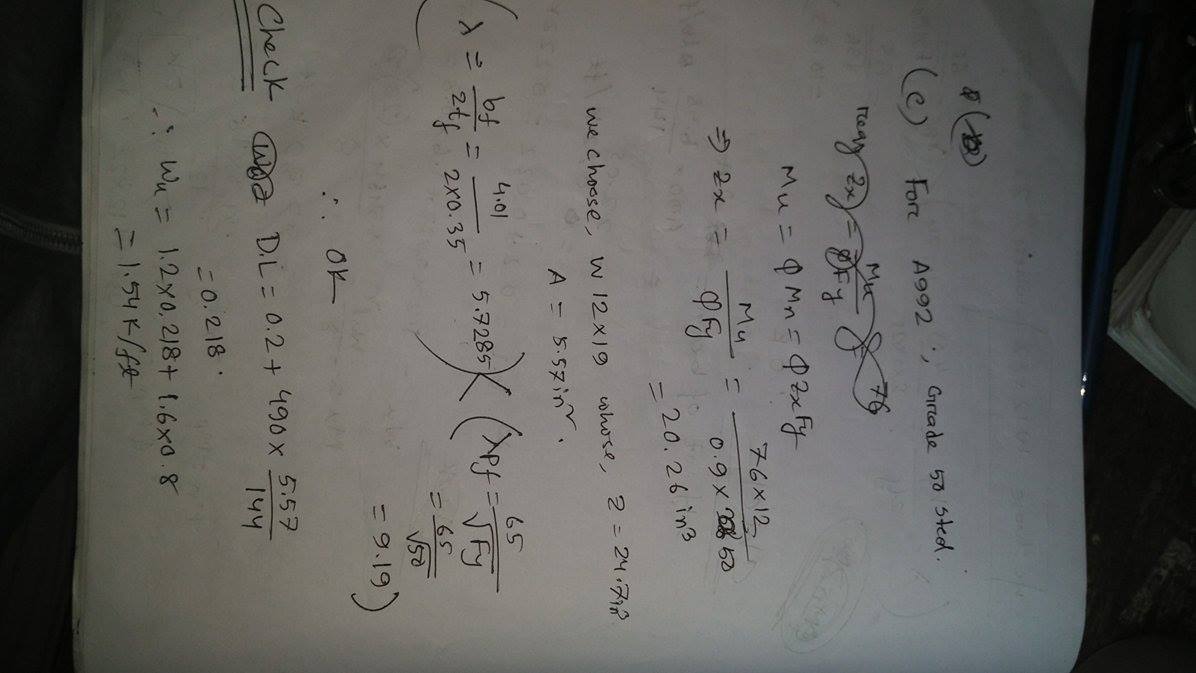 (C) Forc A992, Grcade 50 steel.
reqy Zx = Mu / φFy 76
Mu = φMn = φZxFy
⇒ Zx = Mu / φFy = 76×12 / 0.9×50
= 20.26 in³
we choose, W 12×19 whose, Z = 24.7in³
A = 5.57in².
(λ = bf / 2tf = 4.01 / 2×0.35 = 5.7285) < (λPf = 65 / √Fy
= 65 / √50
= 9.19)
∴ OK
Check: D.L = 0.2 + 490 × 5.57 / 144
= 0.218.
∴ Wu = 1.2×0.218 + 1.6×0.8
= 1.54 K/ft